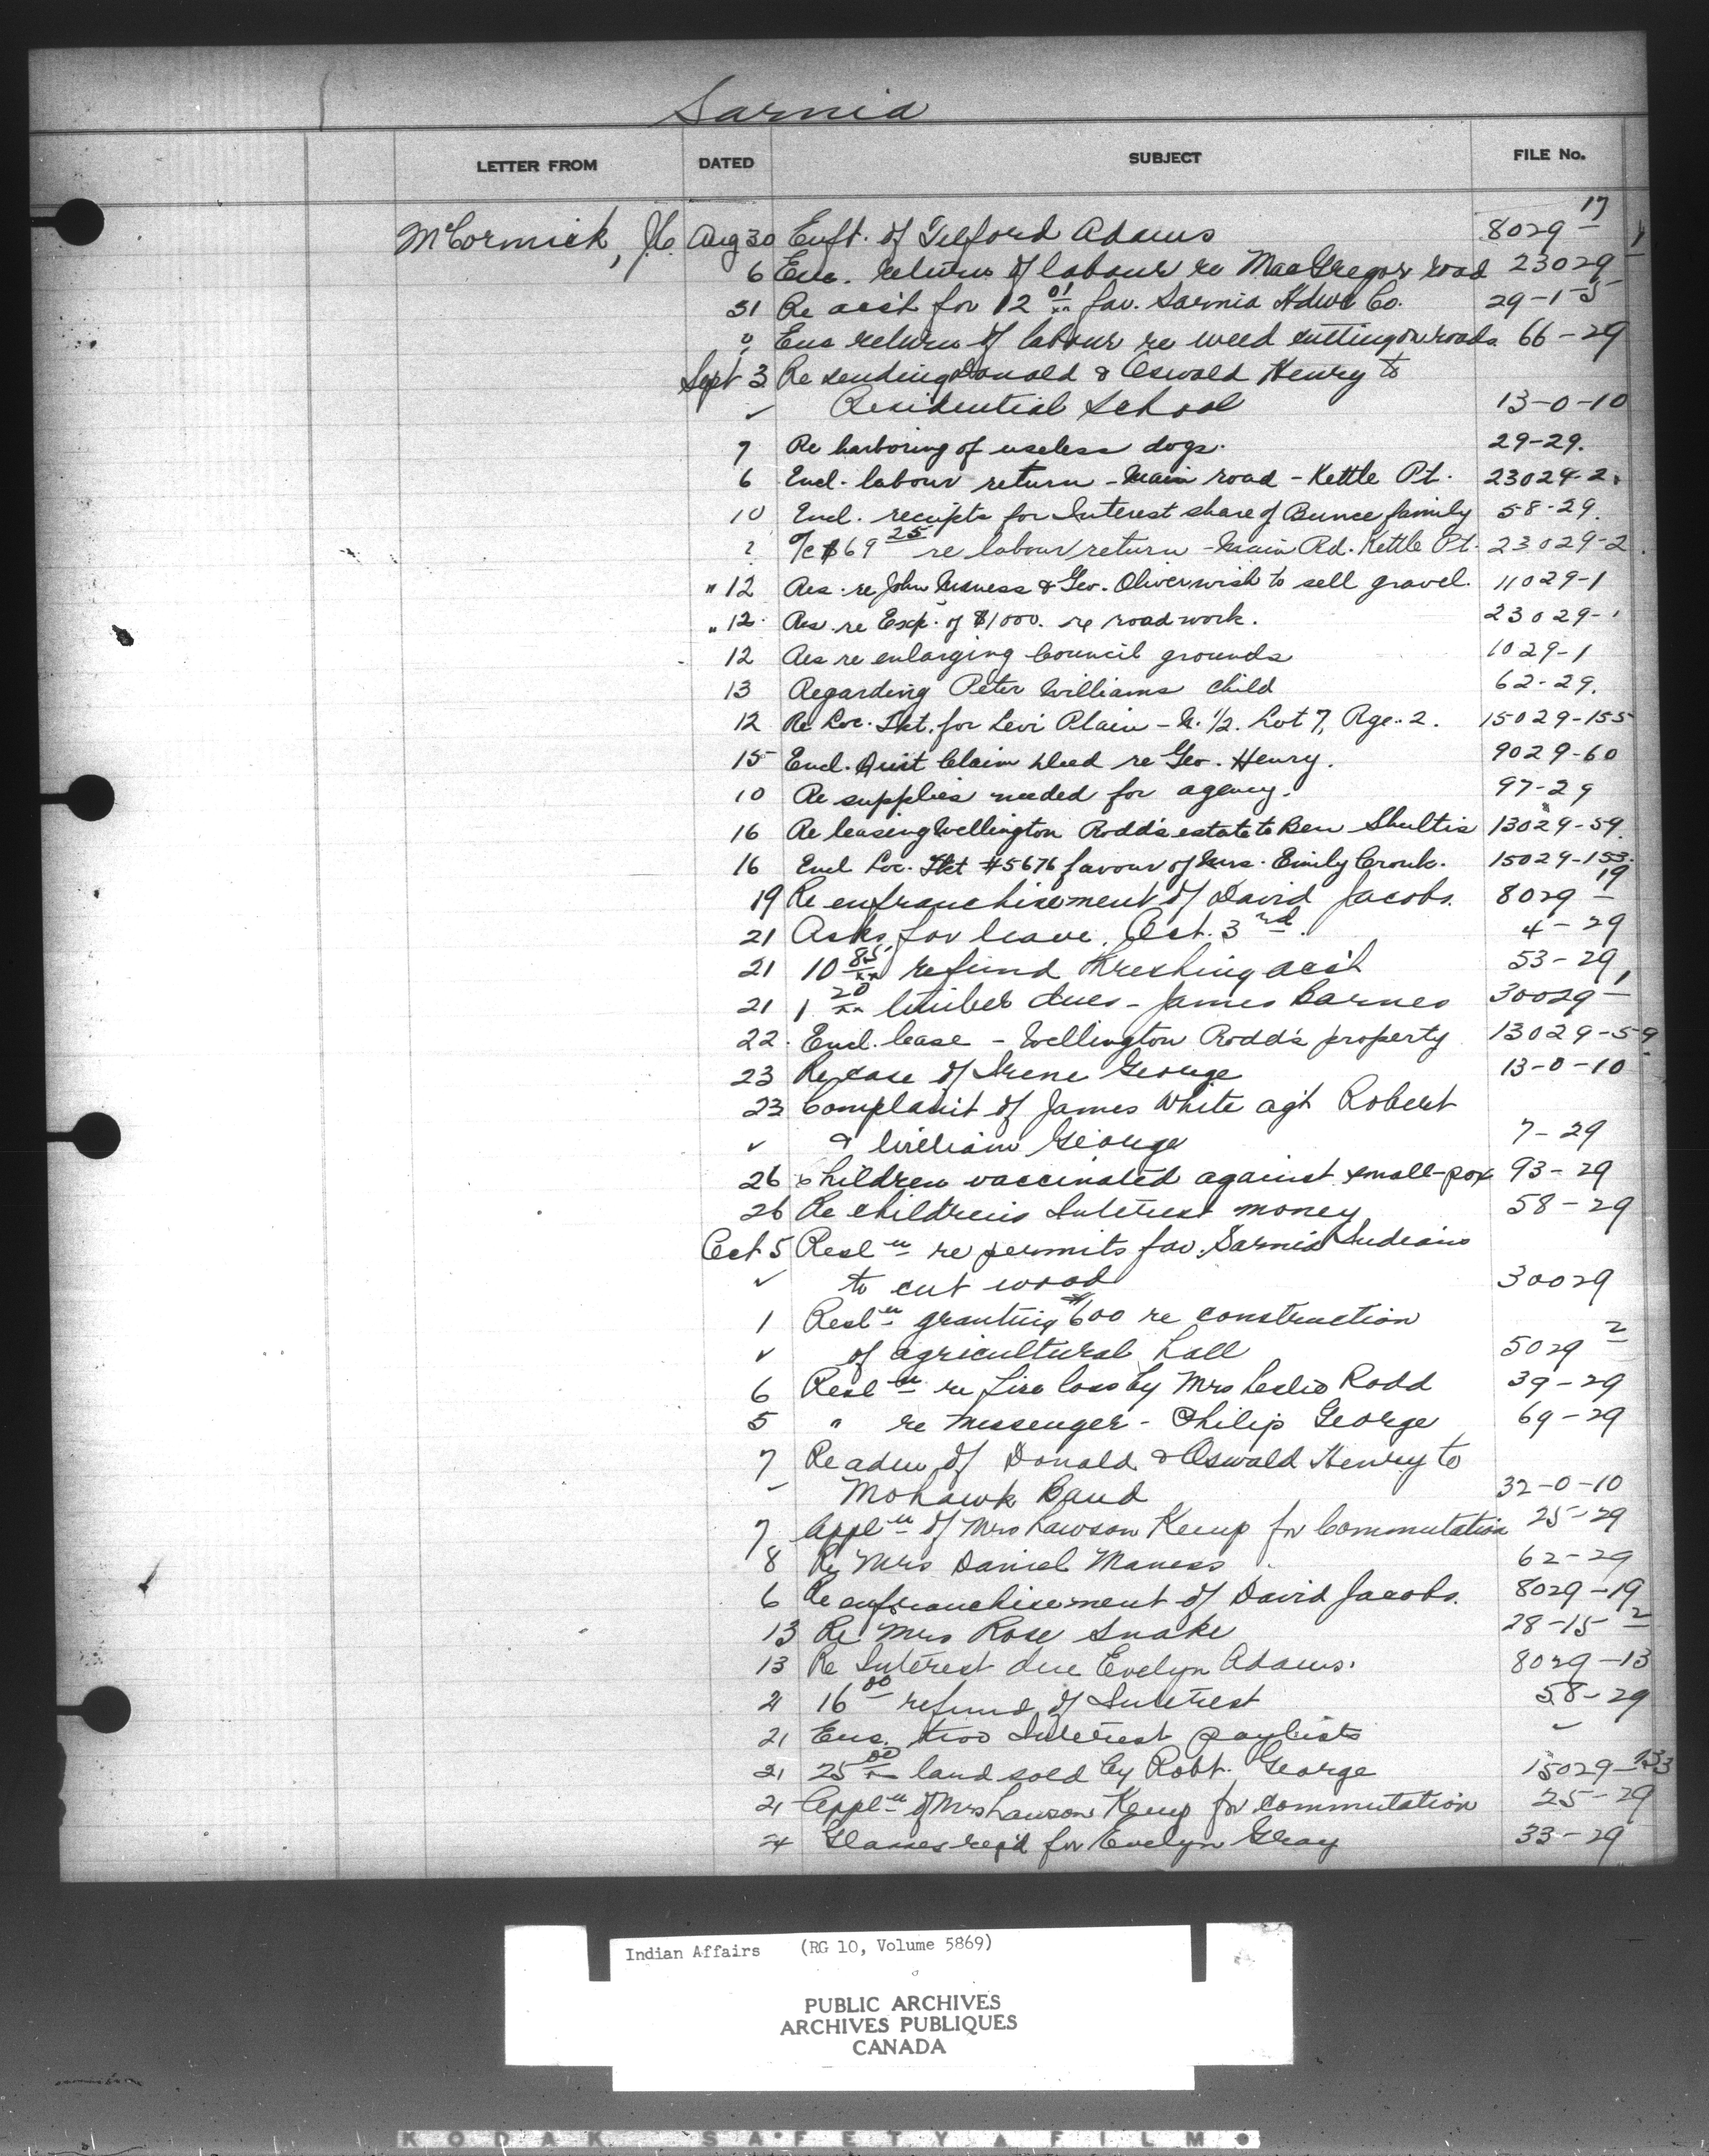 Sarnia
LETTER FROM DATED SUBJECT FILE No.
McCormick, Aug 30 Enft. of Telford Adams 8029 - 17
6 Enc. return of labour re MacGregor road 23029 - 1
31 Re acc't for 12 01/xx fav. Sarnia Hdwe Co. 29-1-5
" Enc return of labour re weed cutting on roads 66-29
Sept 3 Re sending Donald & Oswald Henry to
✓ Residential School 13-0-10
7 Re harboring of useless dogs. 29-29.
6 Encl. labour return - Main road - Kettle Pt. 23029-2.
10 Encl. receipts for Interest share of Bunce family 58-29.
? a/c $69 25 re labour return - Main Rd. Kettle Pt. 23029-2.
" 12 Res. re John Maness & Geo. Oliver wish to sell gravel. 11029-1
" 12. Res re Exp. of $1000. re road work. 23029-1
12 Res re enlarging Council grounds 1029-1
13 Regarding Peter Williams child 62-29.
12 Re Loc. Tkt. for Levi Plain - N. 1/2. Lot 7, Rge. 2. 15029-155
15 Encl. Quit Claim Deed re Geo. Henry. 9029-60
10 Re supplies needed for agency. 97-29
16 Re leasing Wellington Rodd's estate to Ben Shultis 13029-59.
16 Encl Loc. Tkt #5676 favour of Mrs. Emily Cronk. 15029-153.
19 Re enfranchisement of David Jacobs. 8029 - 19
21 Asks for leave. Oct. 3rd. 4-29
21 10 85/xx refund threshing acc't 53-29
21 1 20/xx timber dues - James Barnes 30029 - 1
22. Encl. lease - Wellington Rodd's property 13029-59.
23 Re case of Irene George 13-0-10
23 Complaint of James White ag't Robert
✓ & William George 7-29
26 Children vaccinated against small-pox 93-29
26 Re children's Interest money 58-29
Oct 5 Resln re permits fav. Sarnia Indians
✓ to cut wood 30029
1 Resln granting $600 re construction
✓ of agricultural hall 5029 - 2
6 Resln re fire loss by Mrs Leslie Rodd 39-29
5 " re messenger - Philip George 69-29
7 Re adm of Donald & Oswald Henry to
✓ Mohawk Band 32-0-10
7 Appln of Mrs Lawson Kemp for Commutation 25-29
8 Re Mrs Daniel Maness 62-29
6 Re enfranchisement of David Jacobs. 8029-19
13 Re Mrs Rose Snake 28-15 - 2
13 Re Interest due Evelyn Adams. 8029-13
21 16 00 refund of Interest 58-29
21 Enc. two Interest paylists ✓
21 25 00/xx land sold by Robt. George 15029-133
21 Appln of Mrs Lawson Kemp for commutation 25-29
24 Glasses req'd for Evelyn Gray 33-29
Indian Affairs (RG 10, Volume 5869)
PUBLIC ARCHIVES
ARCHIVES PUBLIQUES
CANADA
KODAK SAFETY FILM